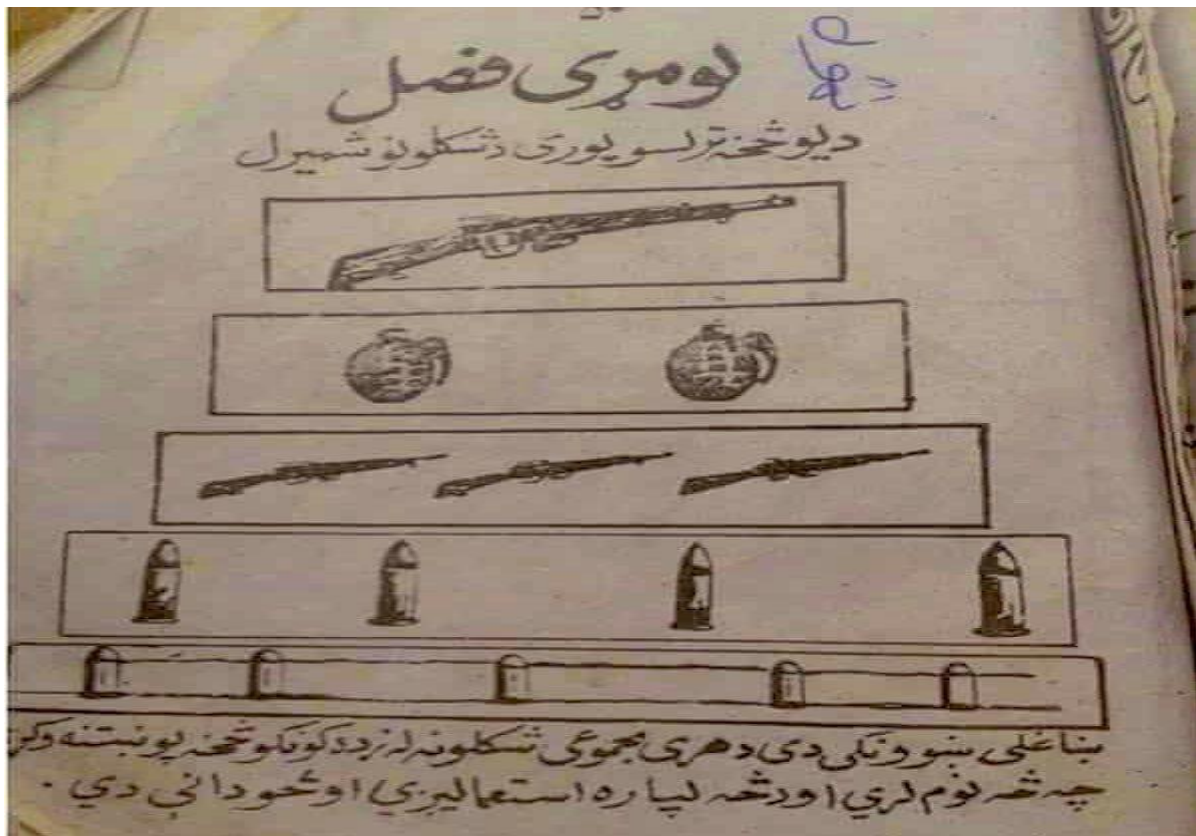 لومړی فصل
د یو څخه تر لسو پوری د شکلونو شمیرل
ښاغلی ښوونکی دی د هری مجموعی شکلونه له زده کونکو څخه پوښتنه وکړ
چه څه نوم لري او د څه لپاره استعمالیږي او څو دانې دي .